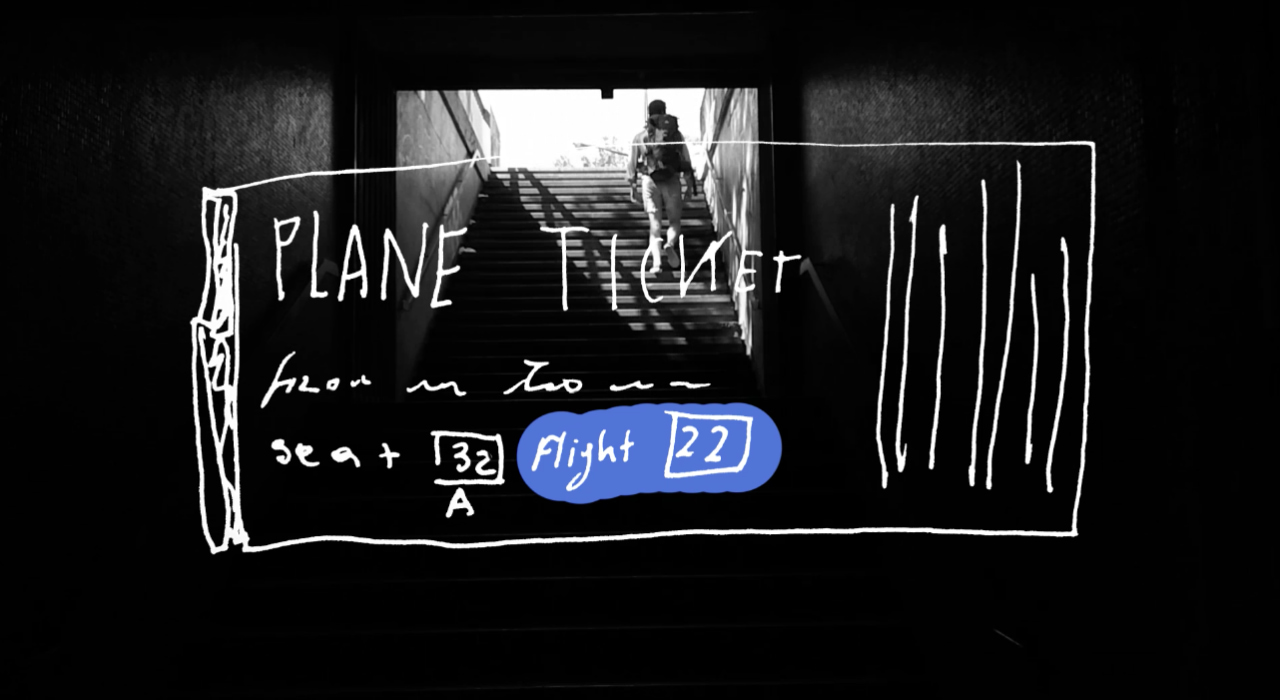 PLANE TICKET
from too
seat 32 Flight 22
A